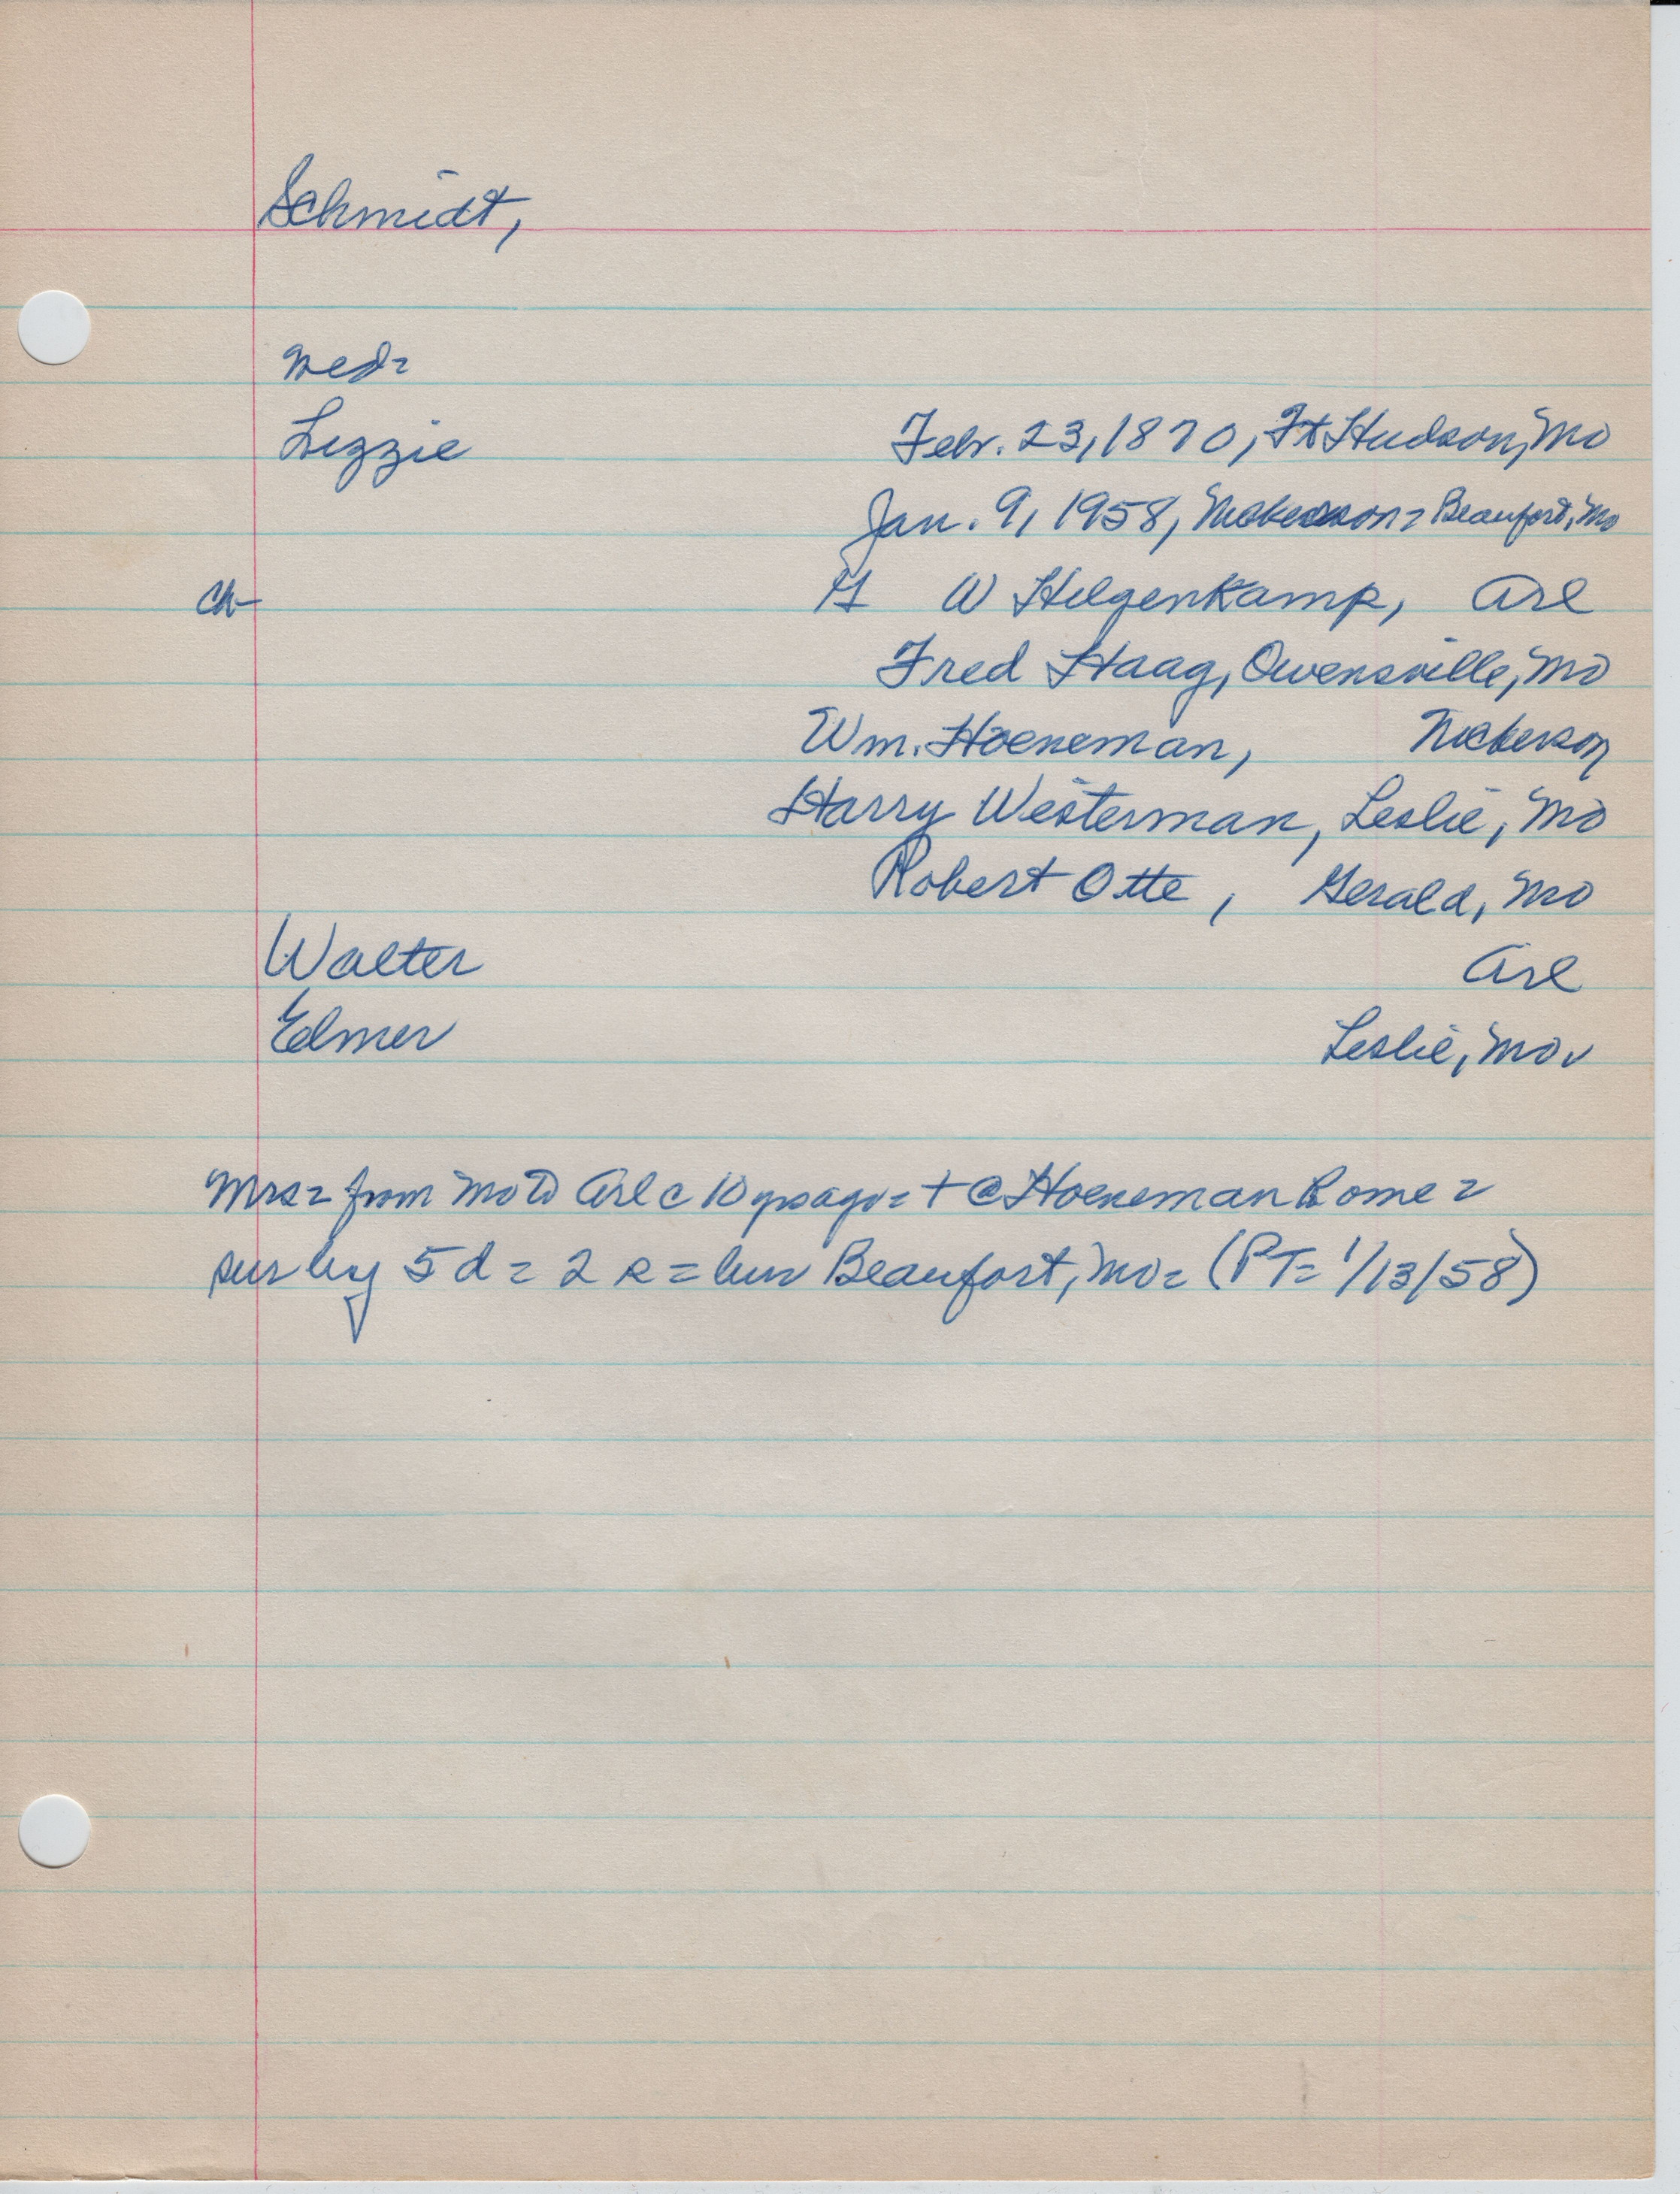 Schmidt,
wed=
Lizzie Feb. 23, 1870, Ft Hudson, Mo
Jan. 9, 1958, Nickerson = Beaufort, Mo
ch- H W Helgenkamp, Arl
Fred Haag, Owensville, Mo
Wm. Hoeneman, Nickerson
Harry Westerman, Leslie, Mo
Robert Otte, Gerald, Mo
Walter Arl
Elmer Leslie, Mo.
Mrs = from Mo to Arl c 10 yrs ago = + @ Hoeneman home =
sur by 5 d = 2 s = bur Beaufort, Mo = (PT= 1/13/58)